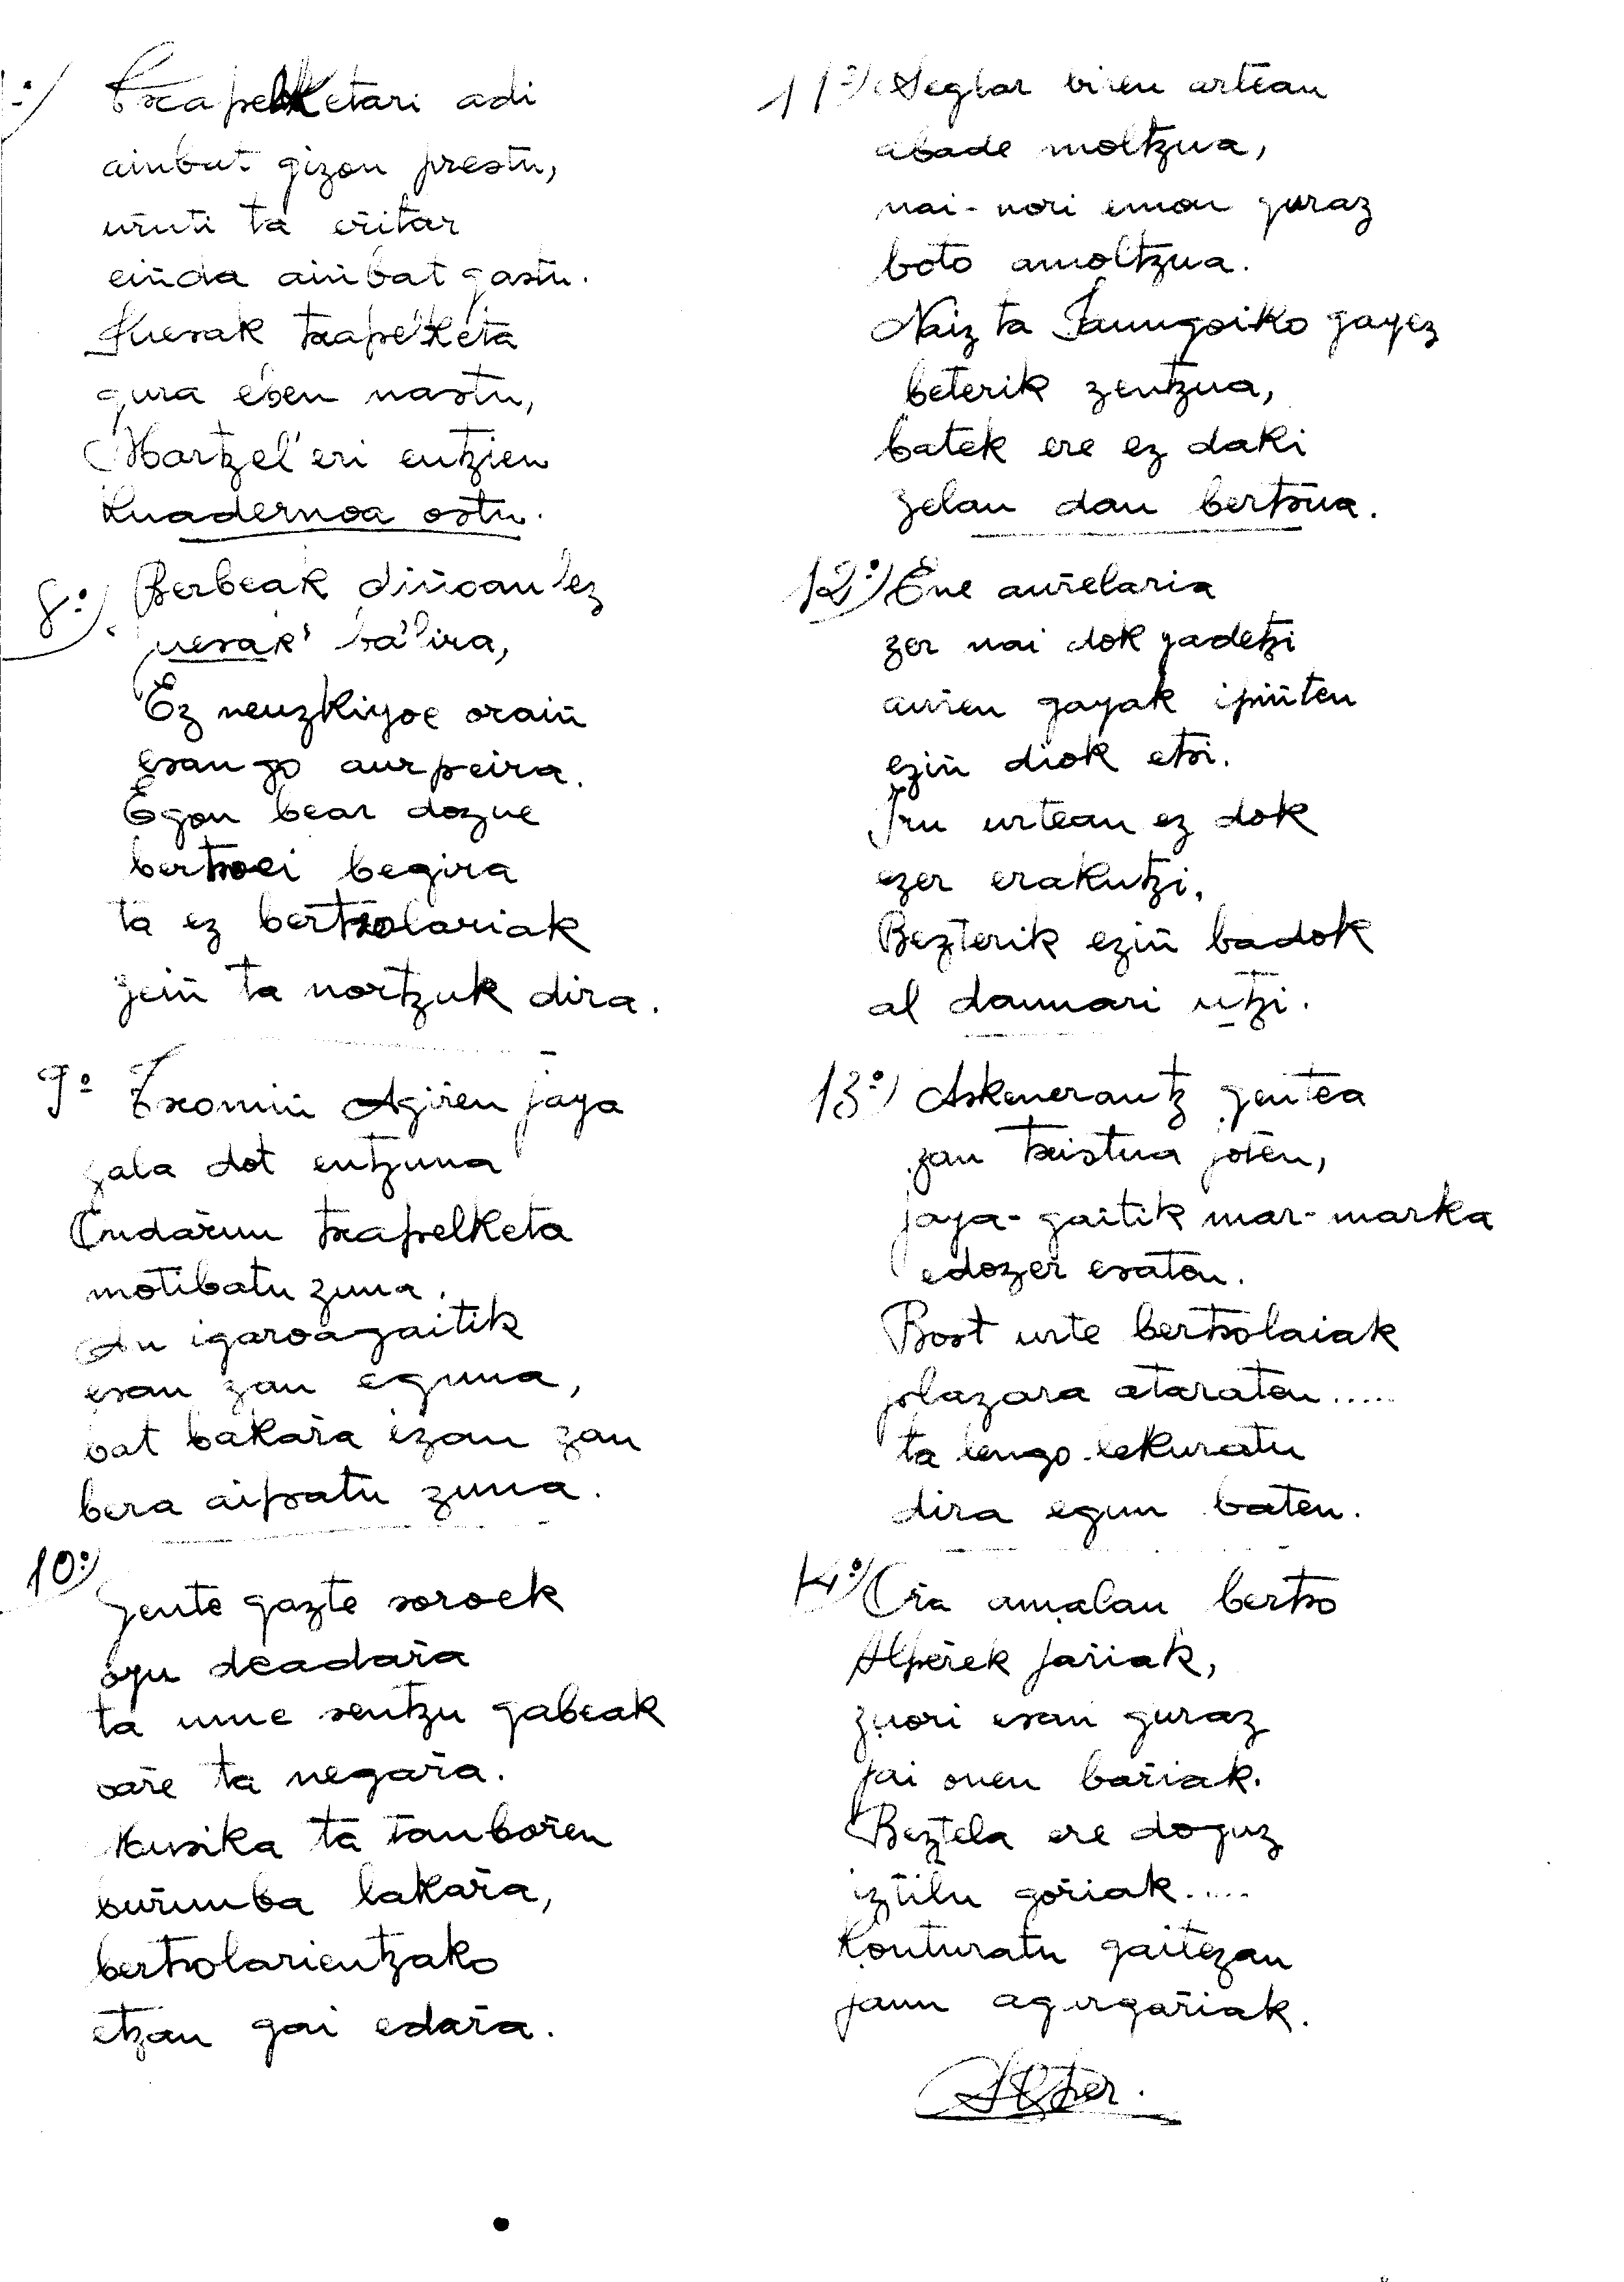 Txapelketari adi
ainbat gizon prestu,
uŕuti ta eŕitar
eiñda ainbat gastu.
Juesak txapelketa
gura eben nastu,
Martzel'eri eutzien
Kuadernoa ostu.
8º) Berbeak diñoan'lez
juesak' ba'lira,
Ez neuzkiyoe orain
esango aurpeira.
Egon bear dozue
bertsoei begira
ta ez bertsolariak
zeiñ ta nortzuk dira.
9º Txomiñ Agiŕen jaya
gala dot entzuna
Ondaŕun txapelketa
motibatu zuna.
An igaroagaitik
esan zan eguna,
bat bakaŕa izan zan
bera aipatu zuna.
10º)
Jente gazte soroek
oyu deadaŕa
ta ume sentzu gabeak
oaŕe ta negaŕa.
Musika ta tanboŕen
buŕunba lakaŕa,
bertsolarientzako
etzan gai edaŕa.
11º) Seglar biren artean
abade moltzua,
nai-nori emon guraz
boto amoltzua.
Naiz ta Jaungoiko gayez
beterik zentzua,
batek ere ez daki
zelan dan bertsua.
12º) Ene auŕelaria
zer nai dok gadetzi
auŕen gayak ipiñten
eziñ diok etsi.
Iru urtean ez dok
ezer erakutzi,
Bezterik eziñ badok
al daunari utzi.
13º) Askenerantz gentea
zan txistua joten,
jaya-gaitik mar-marka
edozer esaten.
Bost urte bertsolaiak
jolazara ataraten.....
ta lengo lekuratu
dira egun baten.
14º) Oŕa amalau bertso
Alpeŕek jaŕiak,
zuori esan guraz
jai onen baŕiak.
Beztela ere doguz
iztilu goŕiak.....
Konturatu gaitezan
jaun agurgaŕiak.
Alper.